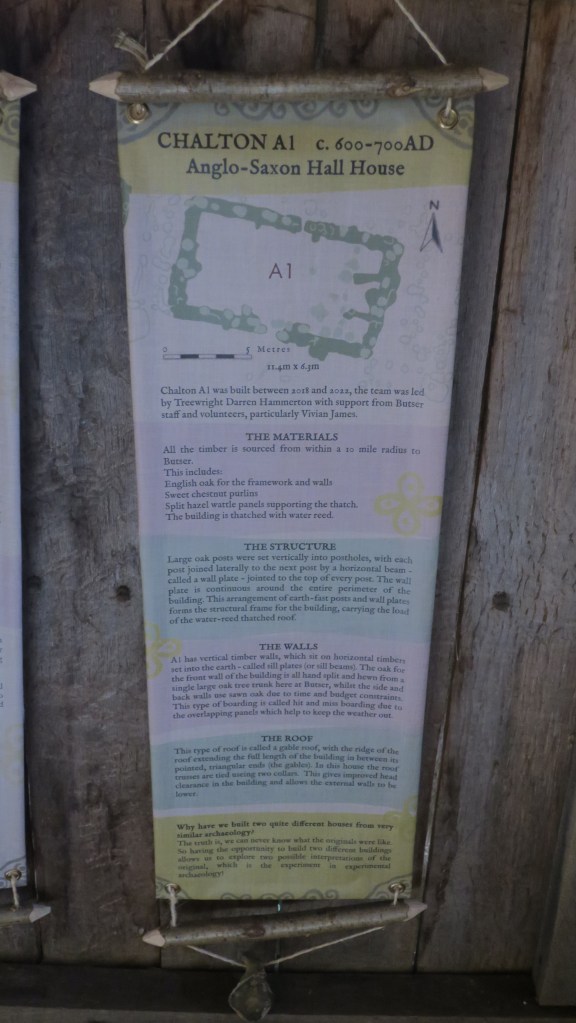 CHALTON A1 c. 600-700AD
Anglo-Saxon Hall House
N
A1
0 5 Metres
11.4m x 6.3m
Chalton A1 was built between 2018 and 2022, the team was led
by Treewright Darren Hammerton with support from Butser
staff and volunteers, particularly Vivian James.
THE MATERIALS
All the timber is sourced from within a 10 mile radius to
Butser.
This includes:
English oak for the framework and walls
Sweet chestnut purlins
Split hazel wattle panels supporting the thatch.
The building is thatched with water reed.
THE STRUCTURE
Large oak posts were set vertically into postholes, with each
post joined laterally to the next post by a horizontal beam -
called a wall plate - jointed to the top of every post. The wall
plate is continuous around the entire perimeter of the
building. This arrangement of earth-fast posts and wall plates
forms the structural frame for the building, carrying the load
of the water-reed thatched roof.
THE WALLS
A1 has vertical timber walls, which sit on horizontal timbers
set into the earth - called sill plates (or sill beams). The oak for
the front wall of the building is all hand split and hewn from a
single large oak tree trunk here at Butser, whilst the side and
back walls use sawn oak due to time and budget constraints.
This type of boarding is called hit and miss boarding due to
the overlapping panels which help to keep the weather out.
THE ROOF
This type of roof is called a gable roof, with the ridge of the
roof extending the full length of the building in between its
pointed, triangular ends (the gables). In this house the roof
trusses are tied using two collars. This gives improved head
clearance in the building and allows the external walls to be
lower.
Why have we built two quite different houses from very
similar archaeology?
The truth is, we can never know what the originals were like.
So having the opportunity to build two different buildings
allows us to explore two possible interpretations of the
original, which is the experiment in experimental
archaeology!